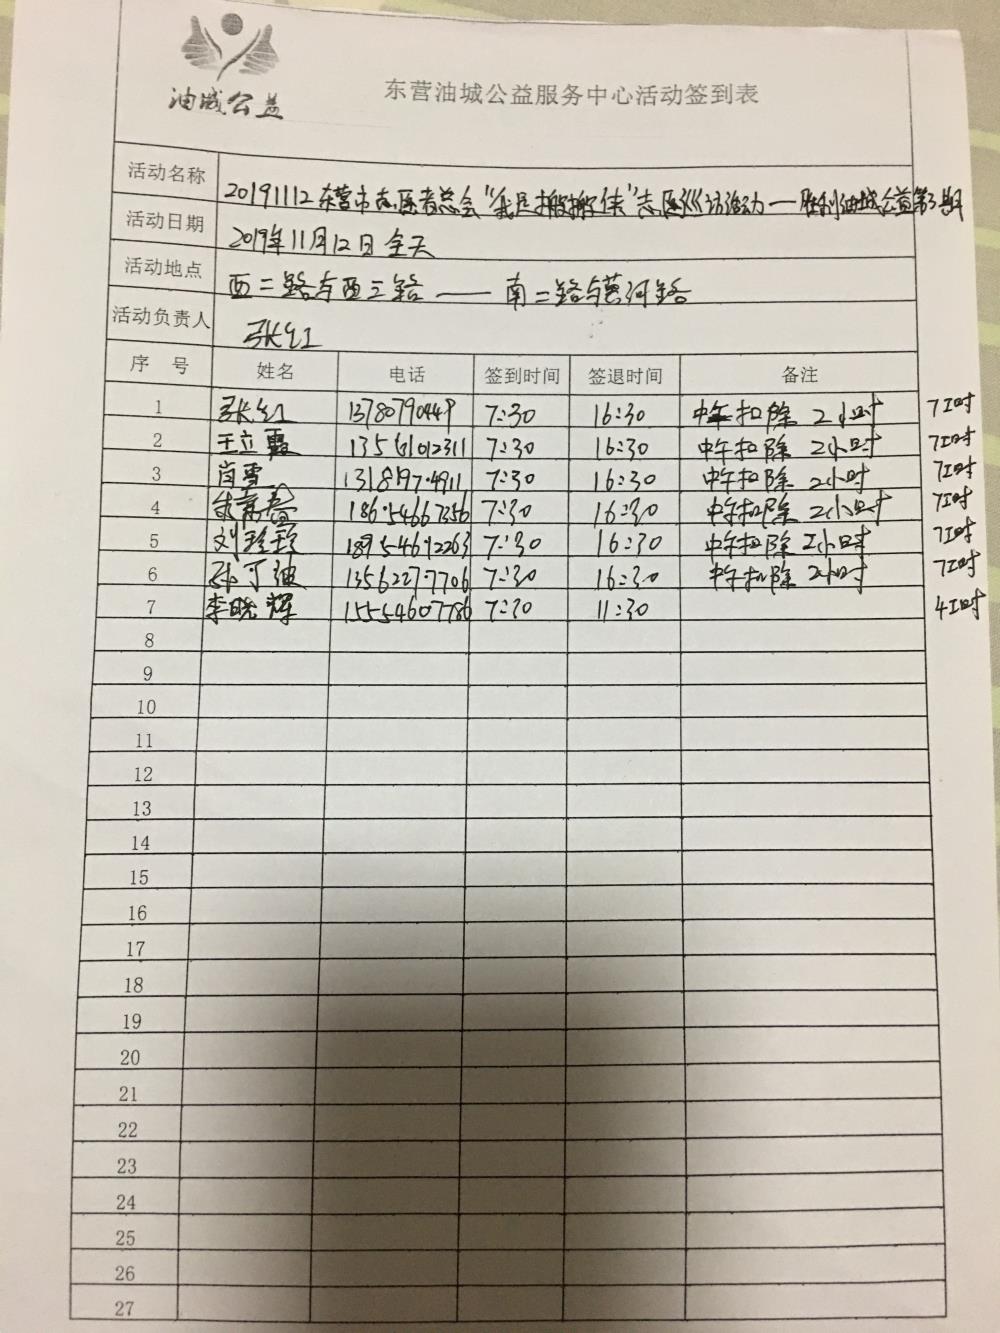 油城公益
东营油城公益服务中心活动签到表
活动名称 20191112东营市志愿者总会"我是搬搬侠"志愿巡访活动—胜利油城公益第3期
活动日期 2019年11月12日全天
活动地点 西二路与西三路——南二路与黄河路
活动负责人 张红
序 号 姓名 电话 签到时间 签退时间 备注
1 张红 13780790449 7:30 16:30 中午扣除2小时 7工时
2 王立霞 13561012311 7:30 16:30 中午扣除2小时 7工时
3 肖雪 13181974911 7:30 16:30 中午扣除2小时 7工时
4 18654667356 7:30 16:30 中午扣除2小时 7工时
5 刘珍珍 18954612263 7:30 16:30 中午扣除2小时 7工时
6 孙可迪 13562277706 7:30 16:30 中午扣除2小时 7工时
7 李晓辉 15554607786 7:30 11:30 4工时
8
9
10
11
12
13
14
15
16
17
18
19
20
21
22
23
24
25
26
27